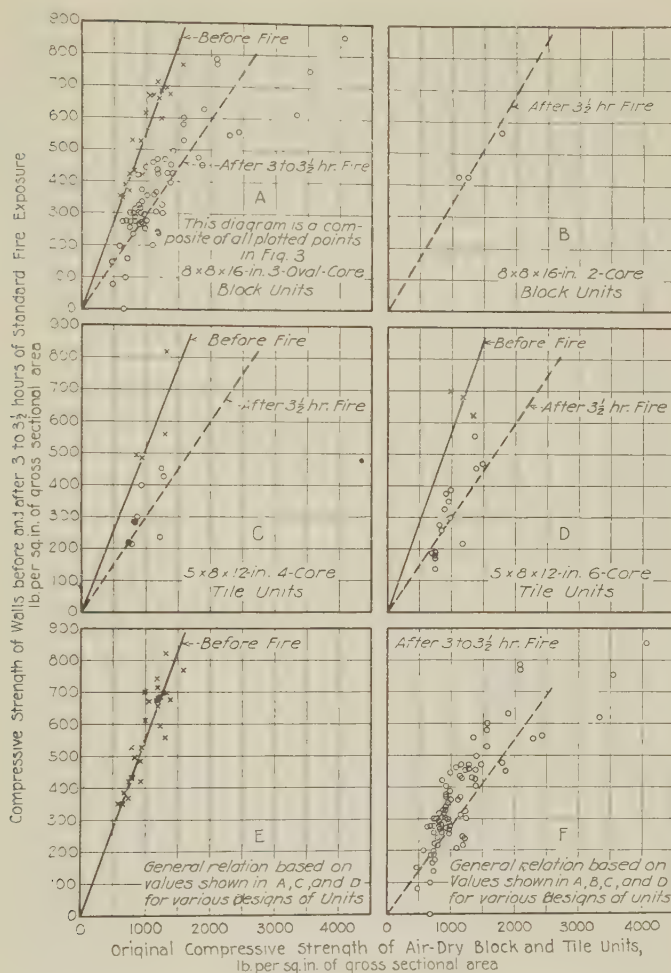 Compressive Strength of Walls before and after 3 to 3½ hours of Standard Fire Exposure
lb. per sq. in. of gross sectional area
900
800
700
600
500
400
300
200
100
0
Before Fire
After 3 to 3½ hr. Fire
A
This diagram is a com-
posite of all plotted points
in Fig. 3
8 x 8 x 16-in. 3-Oval-Core
Block Units
After 3½ hr. Fire
B
8 x 8 x 16-in. 2-Core
Block Units
900
800
700
600
500
400
300
200
100
0
Before Fire
After 3½ hr. Fire
C
5 x 8 x 12-in. 4-Core
Tile Units
Before Fire
After 3½ hr. Fire
D
5 x 8 x 12-in. 6-Core
Tile Units
900
800
700
600
500
400
300
200
100
0
Before Fire
E
General relation based on
values shown in A, C, and D
for various designs of Units
After 3 to 3½ hr. Fire
F
General Relation based on
Values shown in A, B, C, and D
for various designs of units
0 1000 2000 3000 4000 0 1000 2000 3000 4000
Original Compressive Strength of Air-Dry Block and Tile Units,
lb. per sq. in. of gross sectional area